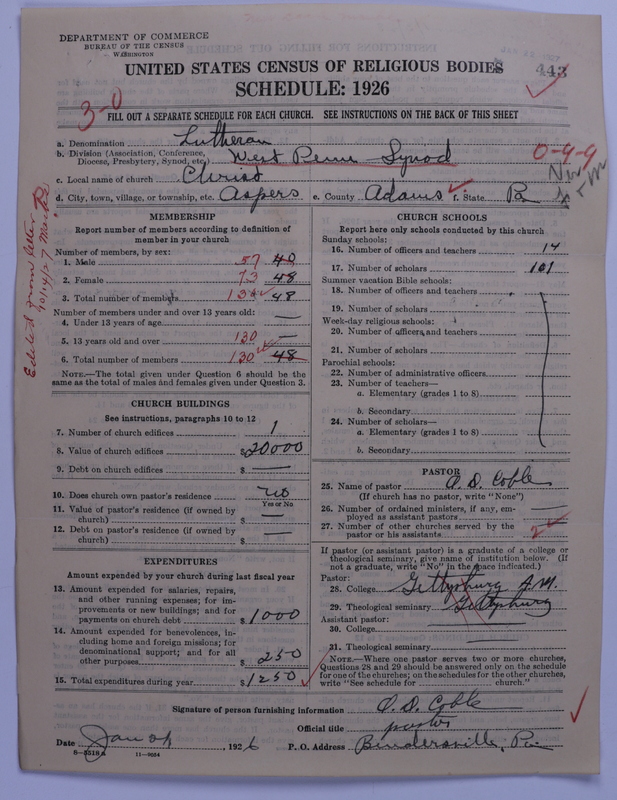 DEPARTMENT OF COMMERCE
BUREAU OF THE CENSUS
WASHINGTON
UNITED STATES CENSUS OF RELIGIOUS BODIES
443
SCHEDULE: 1926
3-0
FILL OUT A SEPARATE SCHEDULE FOR EACH CHURCH. SEE INSTRUCTIONS ON THE BACK OF THIS SHEET
a. Denomination Lutheran
b. Division (Association, Conference, Diocese, Presbytery, Synod, etc.) West Penn Synod
0-9-9
c. Local name of church Christ
d. City, town, village, or township, etc. Aspers e. County Adams f. State Pa
Edited from letter
MEMBERSHIP
Report number of members according to definition of
member in your church
Number of members, by sex:
1. Male 57 40
2. Female 73 48
3. Total number of members 130 48
Number of members under and over 13 years old:
4. Under 13 years of age —
5. 13 years old and over 130 —
6. Total number of members 130 48
NOTE.—The total given under Question 6 should be
same as the total of males and females given under Question 3.
CHURCH BUILDINGS
See instructions, paragraphs 10 to 12
7. Number of church edifices 1
8. Value of church edifices $20000
9. Debt on church edifices $ —
10. Does church own pastor's residence no
Yes or No
11. Value of pastor's residence (if owned by
church) $ —
12. Debt on pastor's residence (if owned by
church) $ —
EXPENDITURES
Amount expended by your church during last fiscal year
13. Amount expended for salaries, repairs,
and other running expenses; for im-
provements or new buildings; and for
payments on church debt $1000
14. Amount expended for benevolences, in-
cluding home and foreign missions; for
denominational support; and for all
other purposes $250
15. Total expenditures during year $1250
CHURCH SCHOOLS
Report here only schools conducted by this church
Sunday schools:
16. Number of officers and teachers 14
17. Number of scholars 101
Summer vacation Bible schools:
18. Number of officers and teachers
19. Number of scholars
Week-day religious schools:
20. Number of officers and teachers
21. Number of scholars
Parochial schools:
22. Number of administrative officers
23. Number of teachers—
a. Elementary (grades 1 to 8)
b. Secondary
24. Number of scholars—
a. Elementary (grades 1 to 8)
b. Secondary
PASTOR
25. Name of pastor O. D. Coble
(If church has no pastor, write "None")
26. Number of ordained ministers, if any, em-
ployed as assistant pastors —
27. Number of other churches served by the
pastor or his assistants 2
If pastor (or assistant pastor) is a graduate of a college or
theological seminary, give name of institution below. (If
not a graduate, write "No" in the space indicated.)
Pastor:
28. College Gettysburg A.M.
29. Theological seminary Gettysburg
Assistant pastor:
30. College
31. Theological seminary
NOTE.—Where one pastor serves two or more churches,
Questions 28 and 29 should be answered only on the schedule
for one of the churches; on the schedules for the other churches,
write "See schedule for church."
Signature of person furnishing information O. D. Coble
Official title pastor
Date Jan 21, 1926 P. O. Address Bendersville, Pa
8-5518a 11-9034